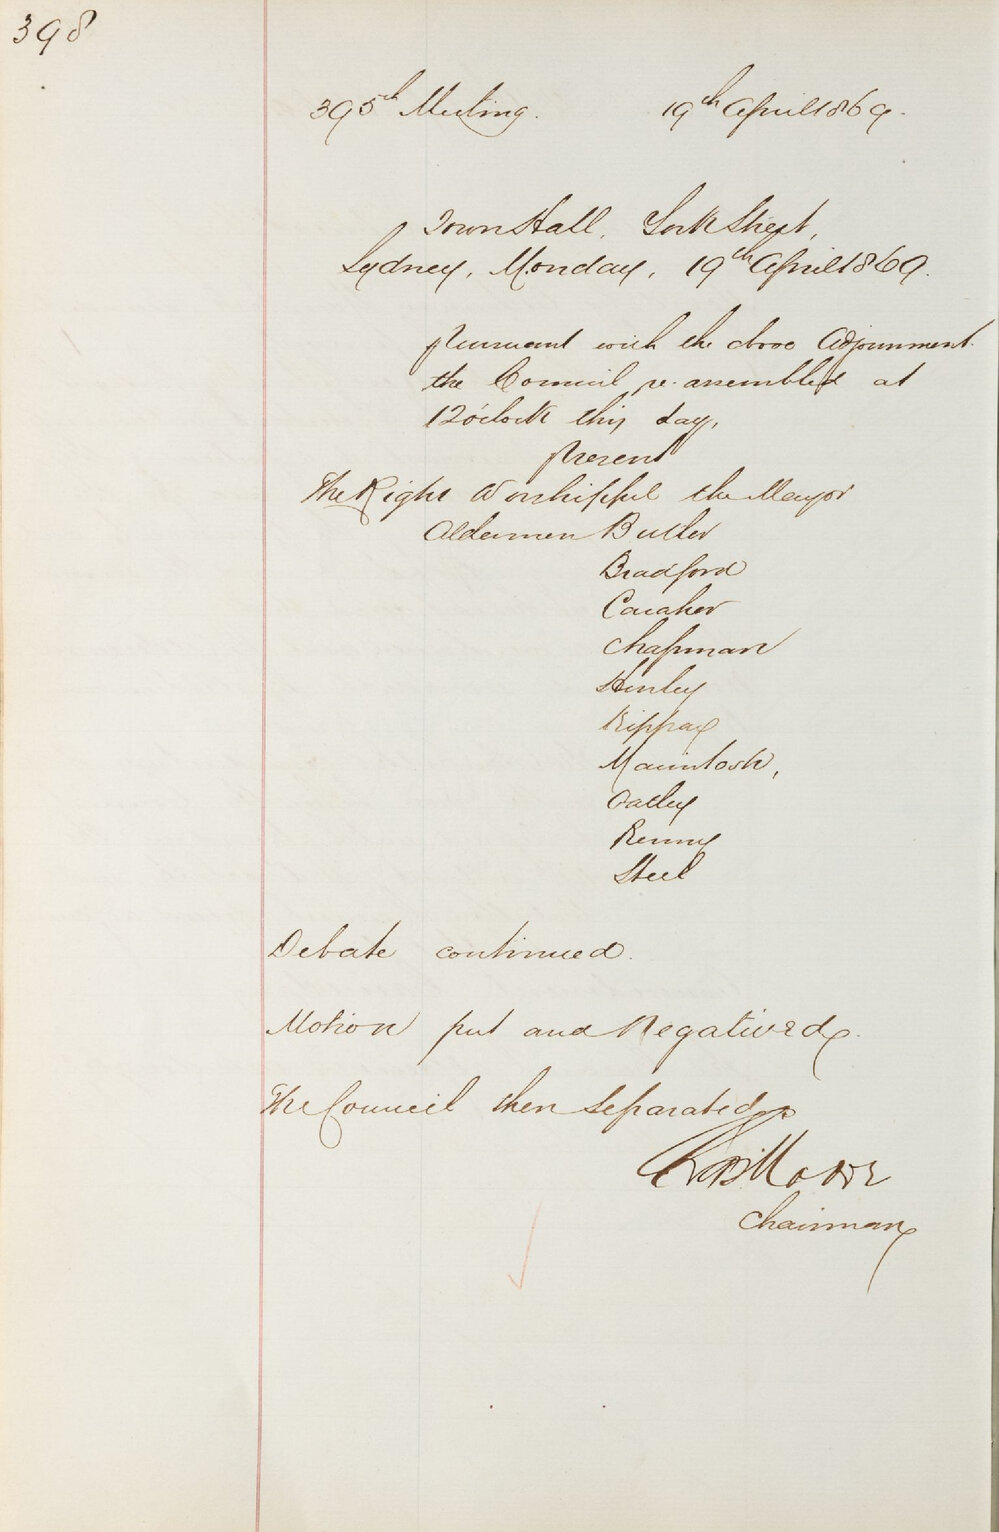 398
395th Meeting. 19th April 1869.
Town Hall, York Street,
Sydney, Monday, 19th April 1869.
Pursuant with the above Adjournment
the Council re-assembled at
12 o'clock this day,
Present
The Right Worshipful the Mayor
Aldermen Butler
Bradford
Caraher
Chapman
Henley
Kippax
Macintosh,
Oatley
Renny
Steel
Debate continued.
Motion put and Negatived.
The Council then Separated
Chas Moore
Chairman